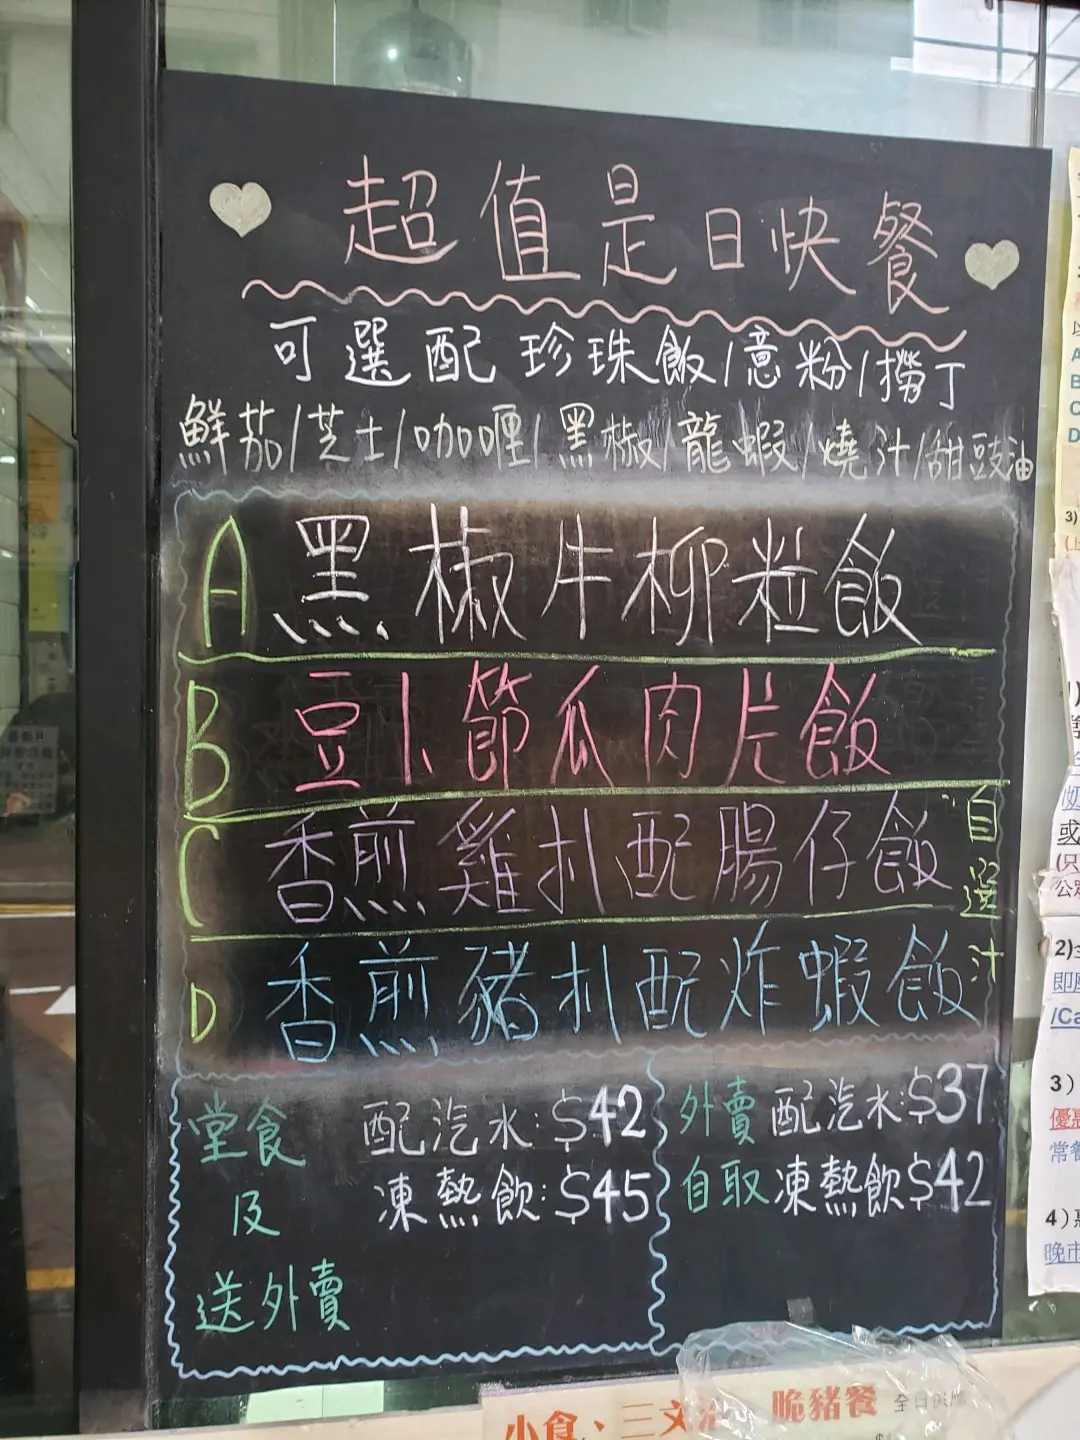 超值是日快餐
可選配珍珠飯/意粉/撈丁
鮮茄/芝士/咖喱/黑椒/龍蝦/燒汁/甜豉油
A 黑椒牛柳粒飯
B 豆卜節瓜肉片飯
C 香煎雞扒配腸仔飯
D 香煎豬扒配炸蝦飯
自選汁
堂食及送外賣
配汽水:$42
凍熱飲:$45
外賣自取
配汽水:$37
凍熱飲$42
小食、三文
脆豬餐 全日供應
A
B
C
D
3)
或
(只
2)
即
/Ca
3)
優惠
常餐
4)
晚市